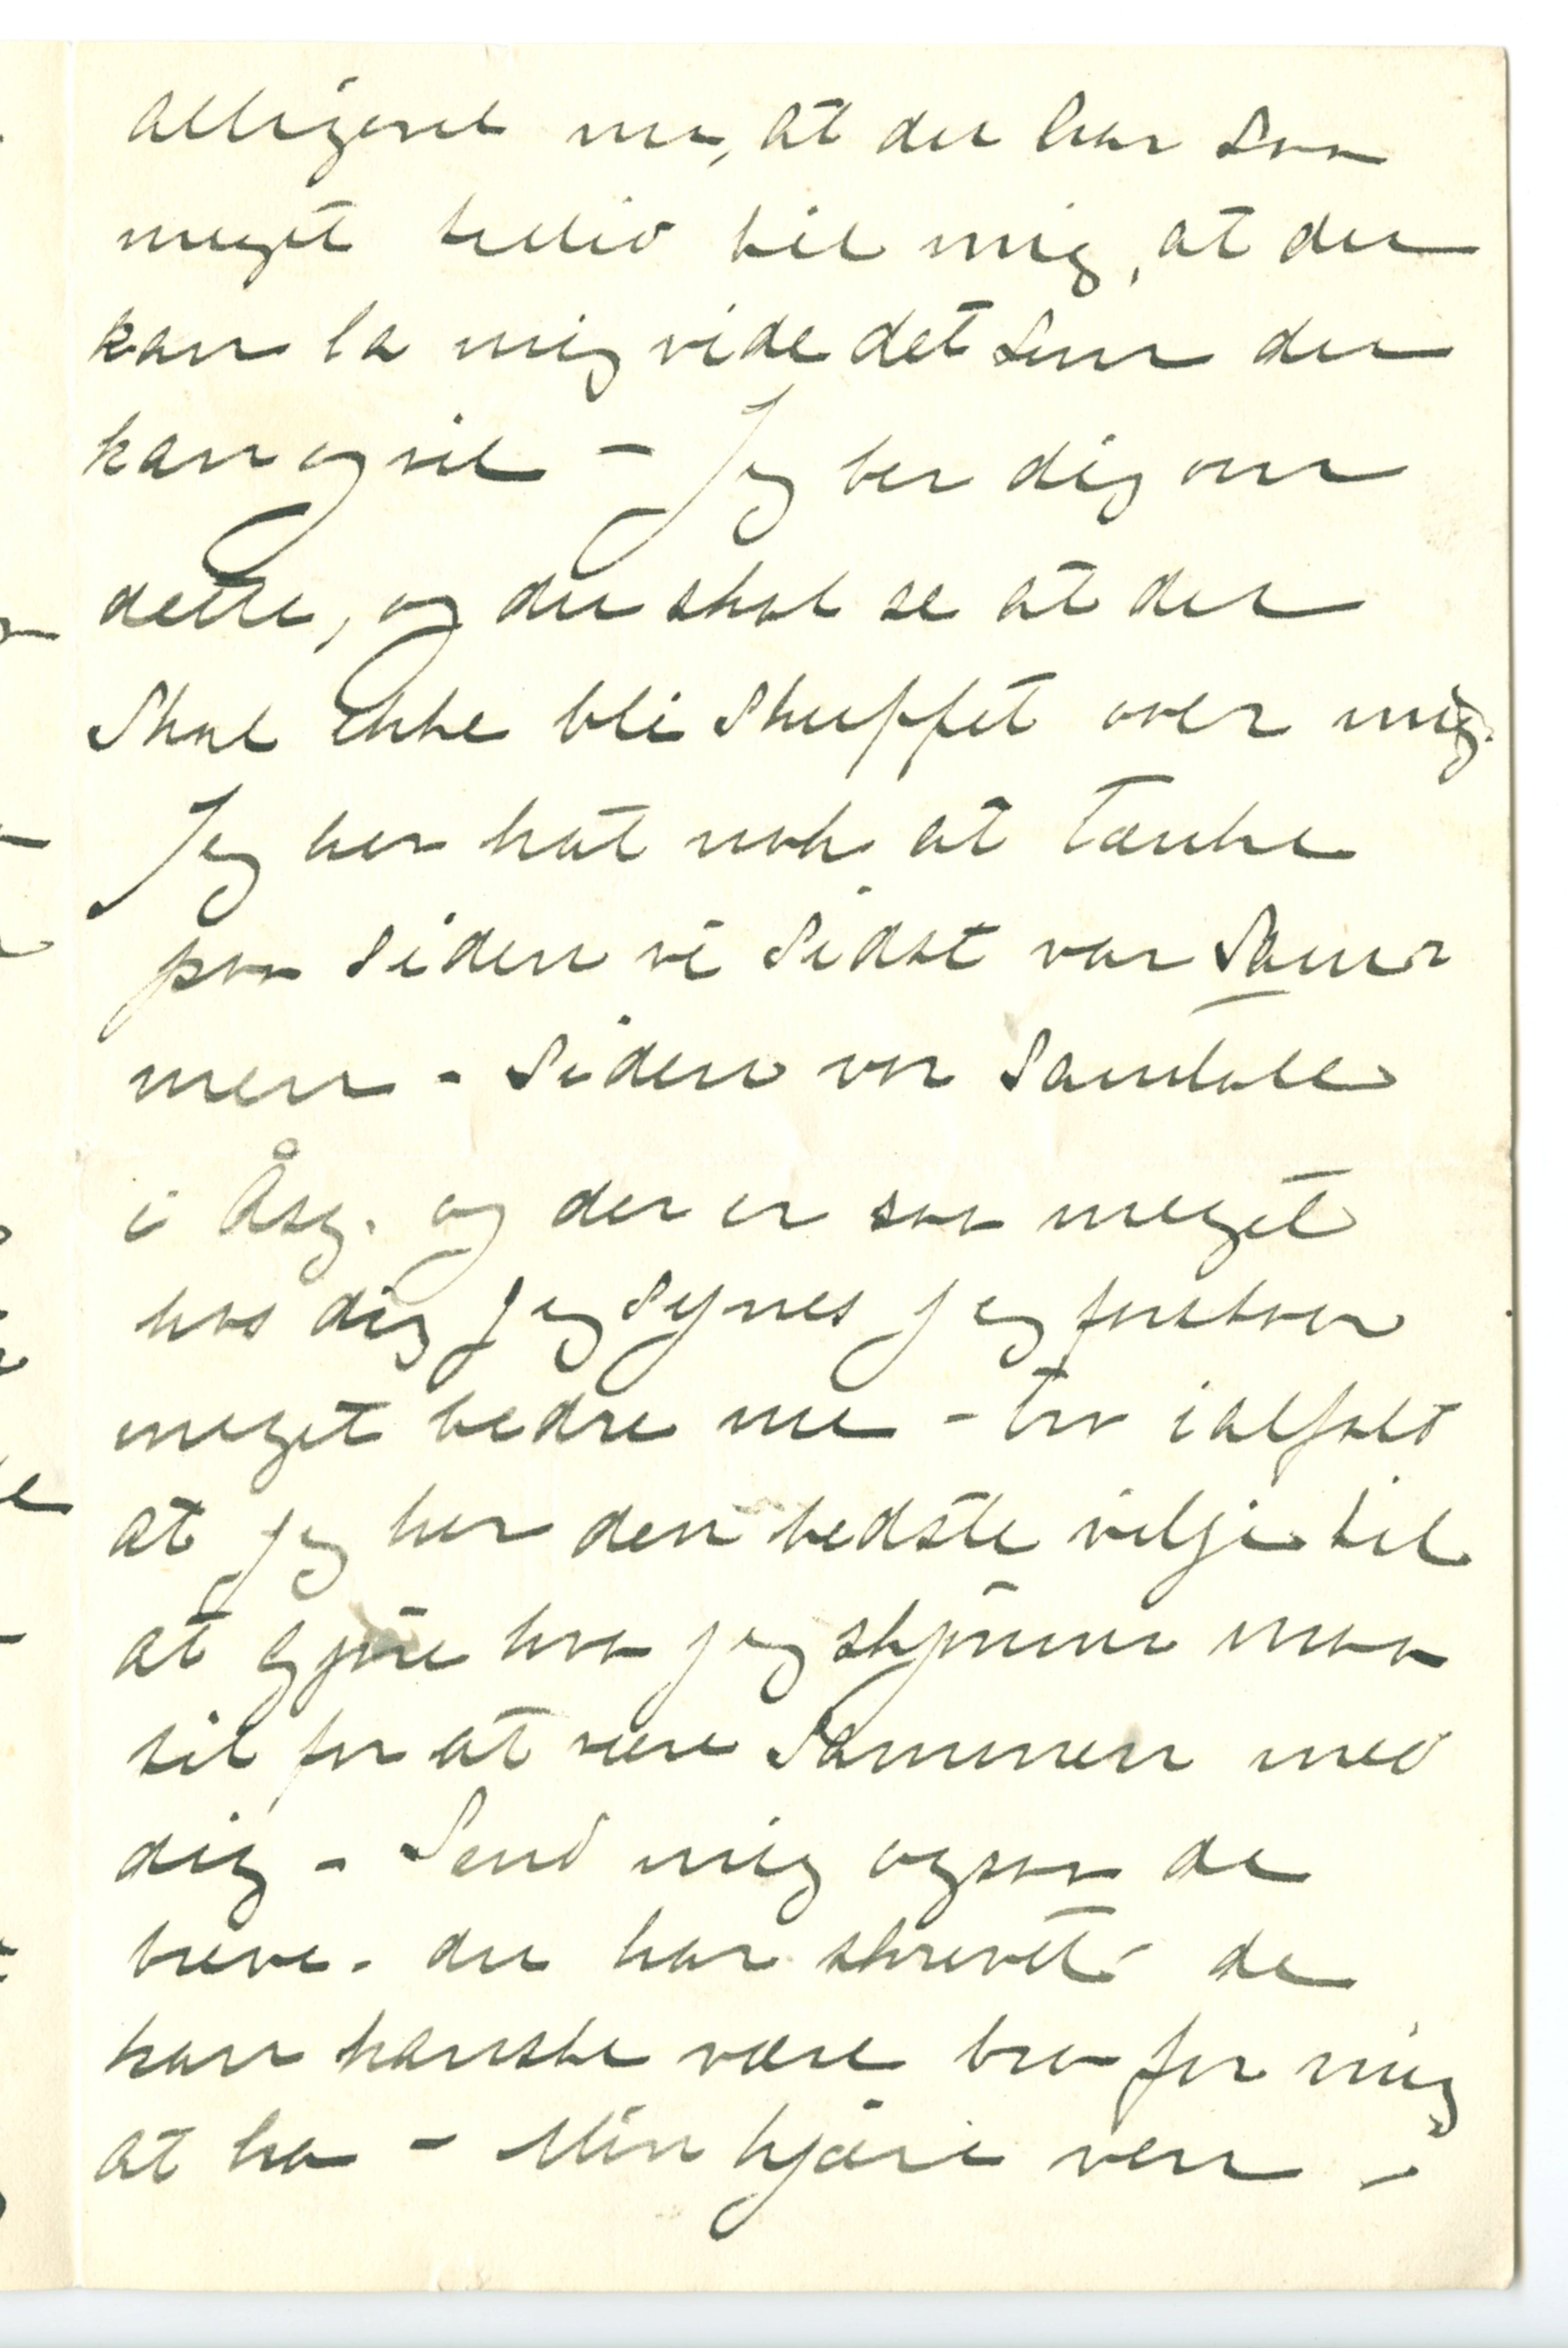 alligevel nu, at du har saa
meget tillid til mig, at du
kan la mig vide det som du
kan og vil – Jeg ber dig om
dette, og du skal se at du
skal ikke bli skuffet over mig.
Jeg har hat nok at tænke
paa siden vi sidst var sam-
men - siden vor samtale
i Åsg. og der er saa meget
hos dig jeg synes jeg forstaar
meget bedre nu - tro ialfald
at jeg har den bedste vilje til
at gjøre hva jeg skjønner maa
til for at være sammen med
dig - Send mig ogsaa de
breve du har skrevet - de
kan kanske være bra for mig
at ha - Min kjære ven -